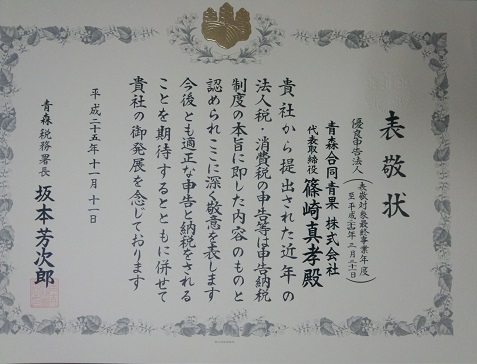 表敬状
優良申告法人
（表敬対象最終事業年度
至平成二十五年三月三十一日）
青森合同青果 株式会社
代表取締役 篠崎真孝殿
貴社から提出された近年の
法人税・消費税の申告等は申告納税
制度の本旨に即した内容のものと
認められここに深く敬意を表します
今後とも適正な申告と納税をされる
ことを期待するとともに併せて
貴社の御発展を念じております
平成二十五年十一月十一日
青森税務署長 坂本芳次郎